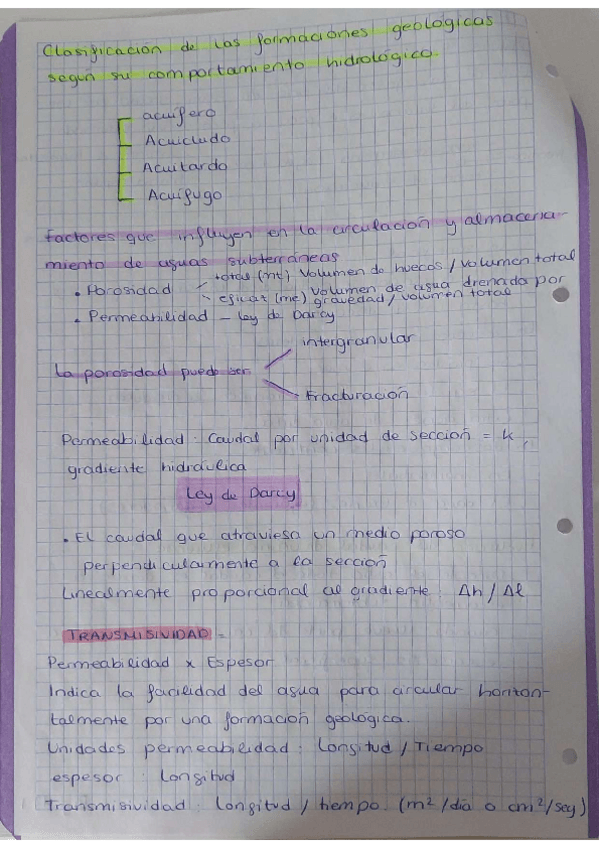 Clasificación de las formaciones geológicas
según su comportamiento hidrológico.
acuífero
Acuicludo
Acuitardo
Acuífugo
factores que influyen en la circulación y almacena-
miento de aguas subterráneas
• Porosidad
total (mt) Volumen de huecos / volumen total
eficaz (me) Volumen de agua drenada por
gravedad / volumen total
• Permeabilidad - ley de Darcy
la porosidad puede ser
intergranular
Fracturación
Permeabilidad: Caudal por unidad de sección = k,
gradiente hidráulica
Ley de Darcy
• El caudal que atraviesa un medio poroso
perpendicularmente a la sección
Linealmente proporcional al gradiente: Δh / Δl
TRANSMISIVIDAD =
Permeabilidad x Espesor
Indica la facilidad del agua para circular horizon-
talmente por una formación geológica.
Unidades permeabilidad: Longitud / Tiempo
espesor: Longitud
Transmisividad: longitud / tiempo (m²/día o cm²/seg)